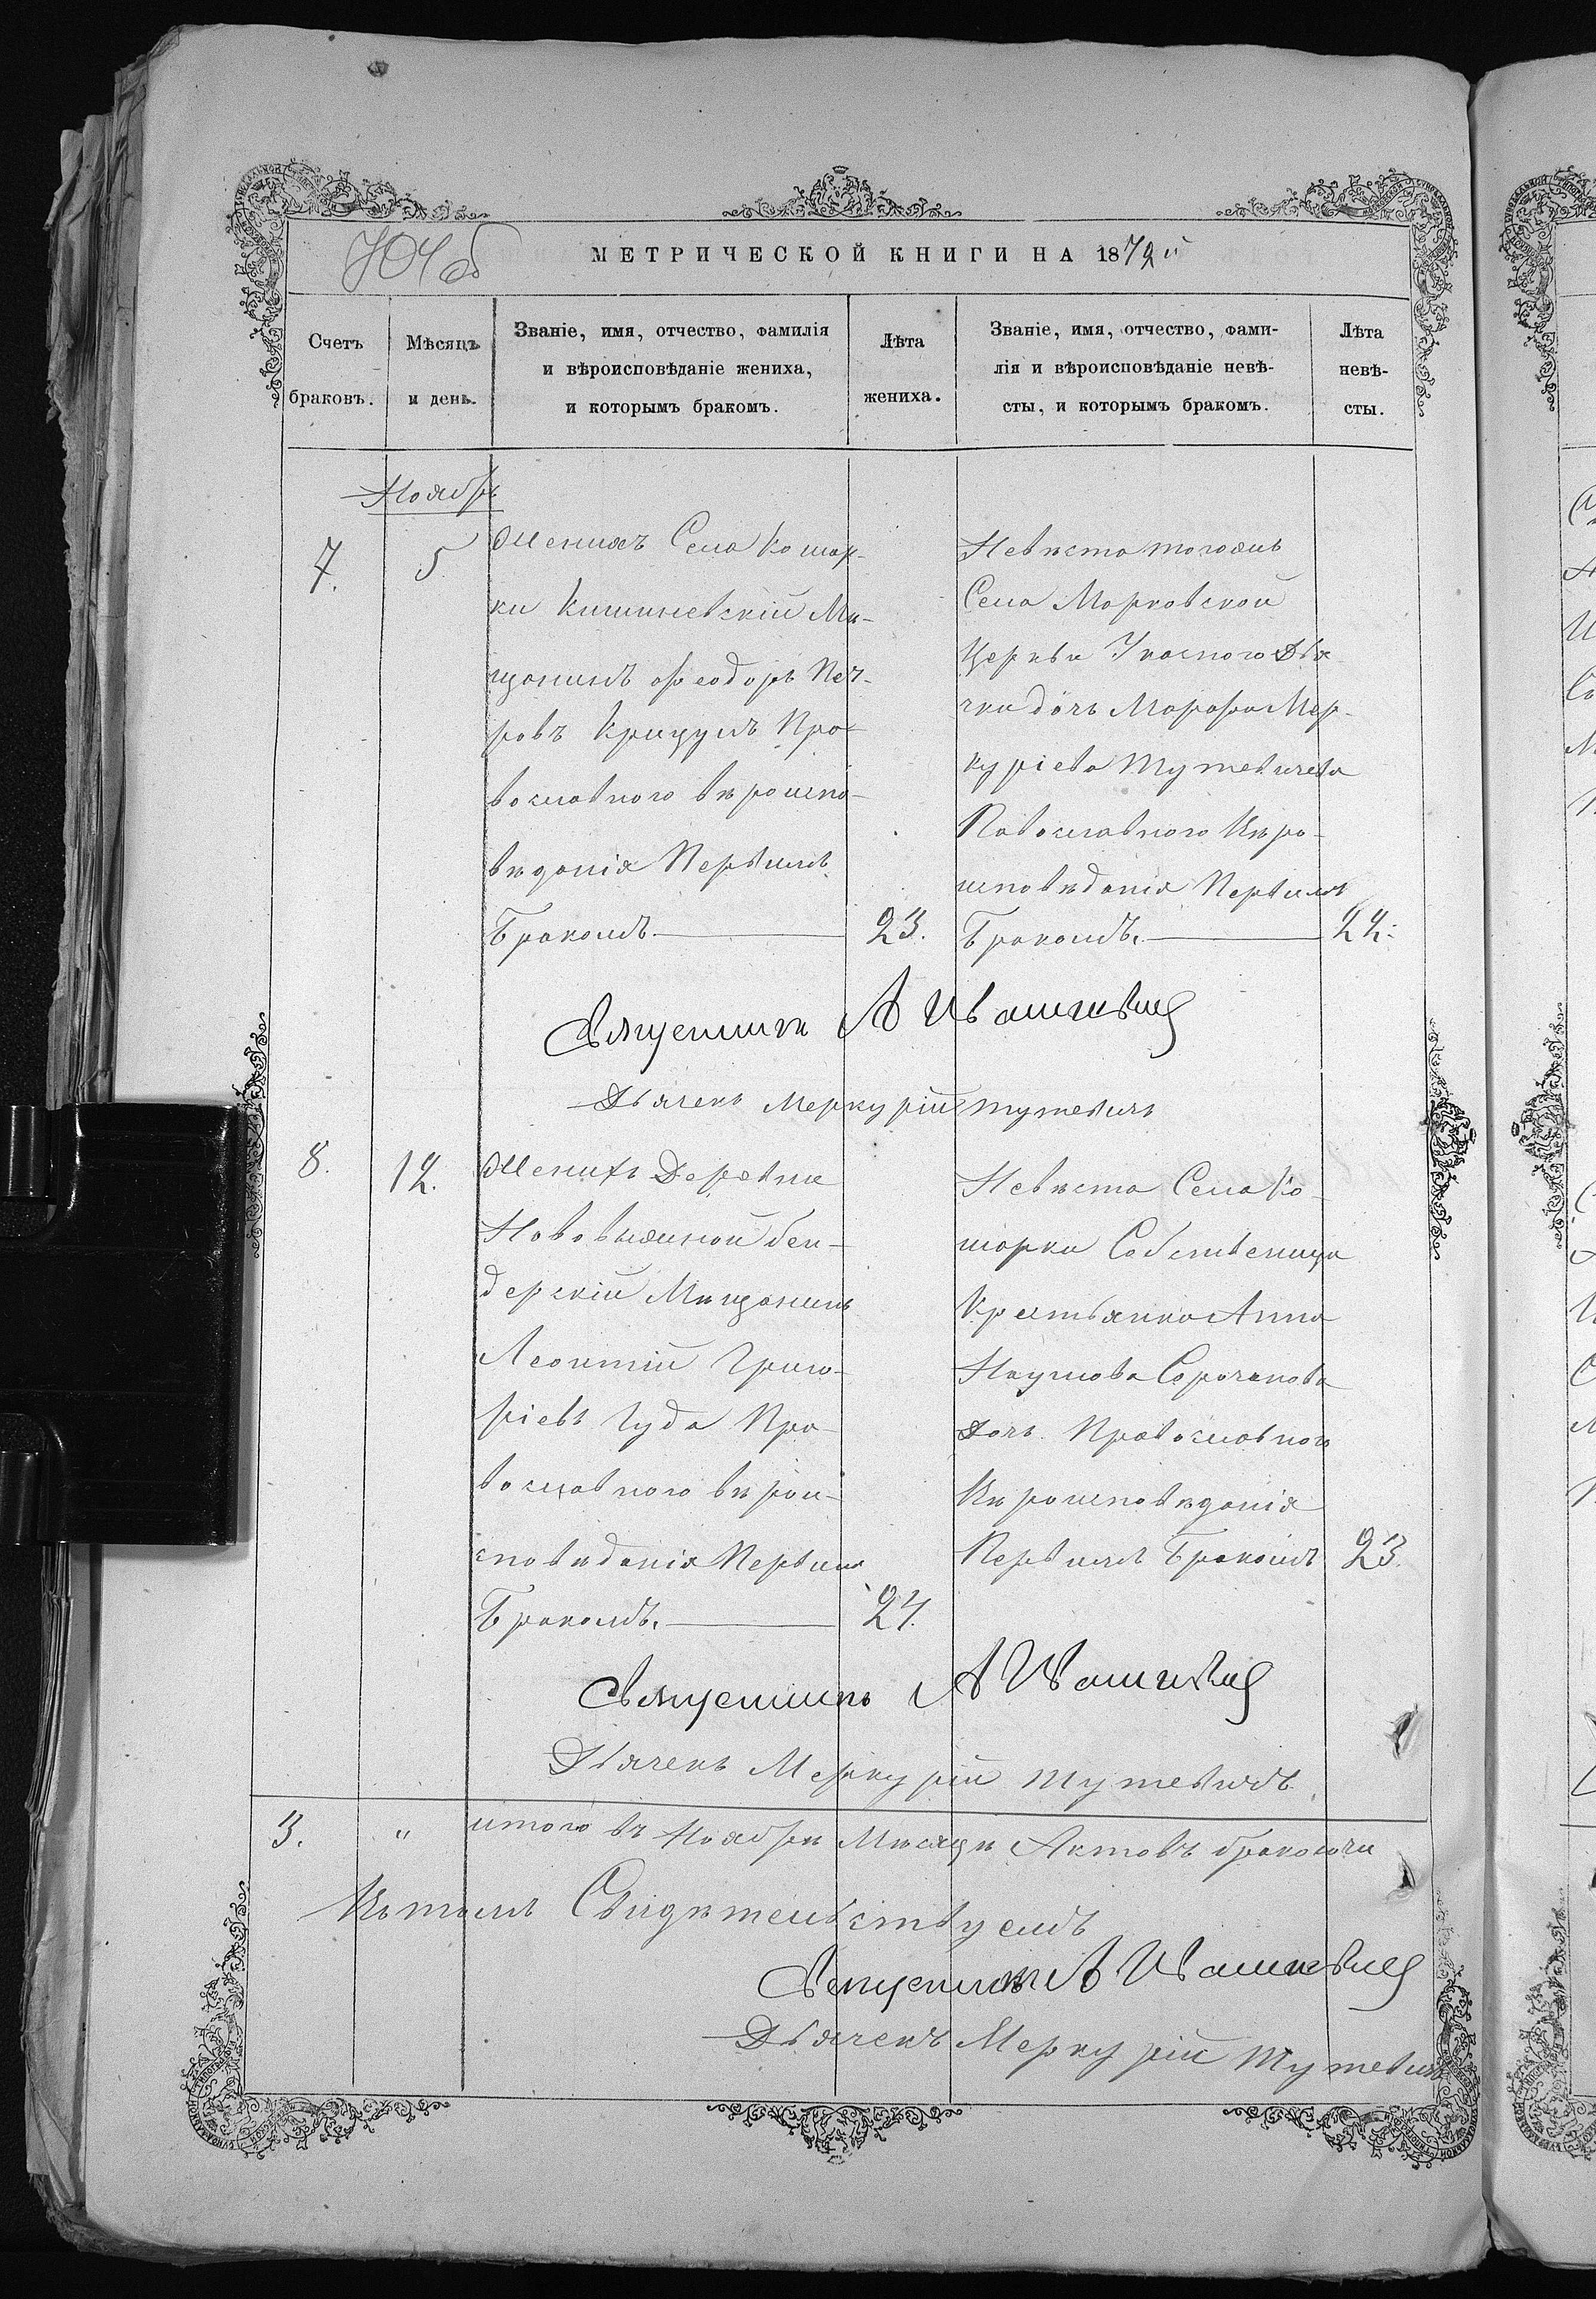 704 об
МЕТРИЧЕСКОЙ КНИГИ НА 1872й
Счетъ браковъ.
Мѣсяцъ и день.
Званіе, имя, отчество, фамилія
и вѣроисповѣданіе жениха,
и которымъ бракомъ.
Лѣта жениха.
Званіе, имя, отчество, фами-
лія и вѣроисповѣданіе невѣ-
сты, и которымъ бракомъ.
Лѣта невѣ-
сты.
Ноябрь
7.
5
Женихъ Села Кошар-
ки Кишиневскій Мѣ-
щанинъ Ѳеодоръ Пет-
ровъ Крицулъ Пра-
вославного вѣроиспо-
вѣданія Первымъ
Бракомъ
23.
Невѣста тогожъ
Села Марковской
Церкви Указного Дья
чка дочь Марѳа Мер-
куріева Тутевичева
Павославного Вѣро-
исповѣданія Первымъ
Бракомъ.
22.
Священникъ А Ивашкевич
Дьячекъ Меркурій Тутевичъ
8.
12.
Женихъ Деревни
бен-
дерскій Мѣщанинъ
Леонтій Григо-
ріевъ Гуда Пра-
вославного вѣрои-
сповѣданія Первым
Бракомъ.
24.
Невѣста Села Ко-
шарки Собственица
Крестьянка Анна
Наумова Сорочанова
Дочь Православного
Вѣроисповѣданія
Первымъ Бракомъ
23.
Священникъ А Ивашкевич
Дьячекъ Меркурій Тутевичъ
3.
"
итого въ Ноябрѣ Мѣсяцѣ Актовъ бракосочи
Въ томъ Свидѣтельствуемъ
Священникъ А Ивашкевич
Дьячекъ Меркурій Тутевичъ